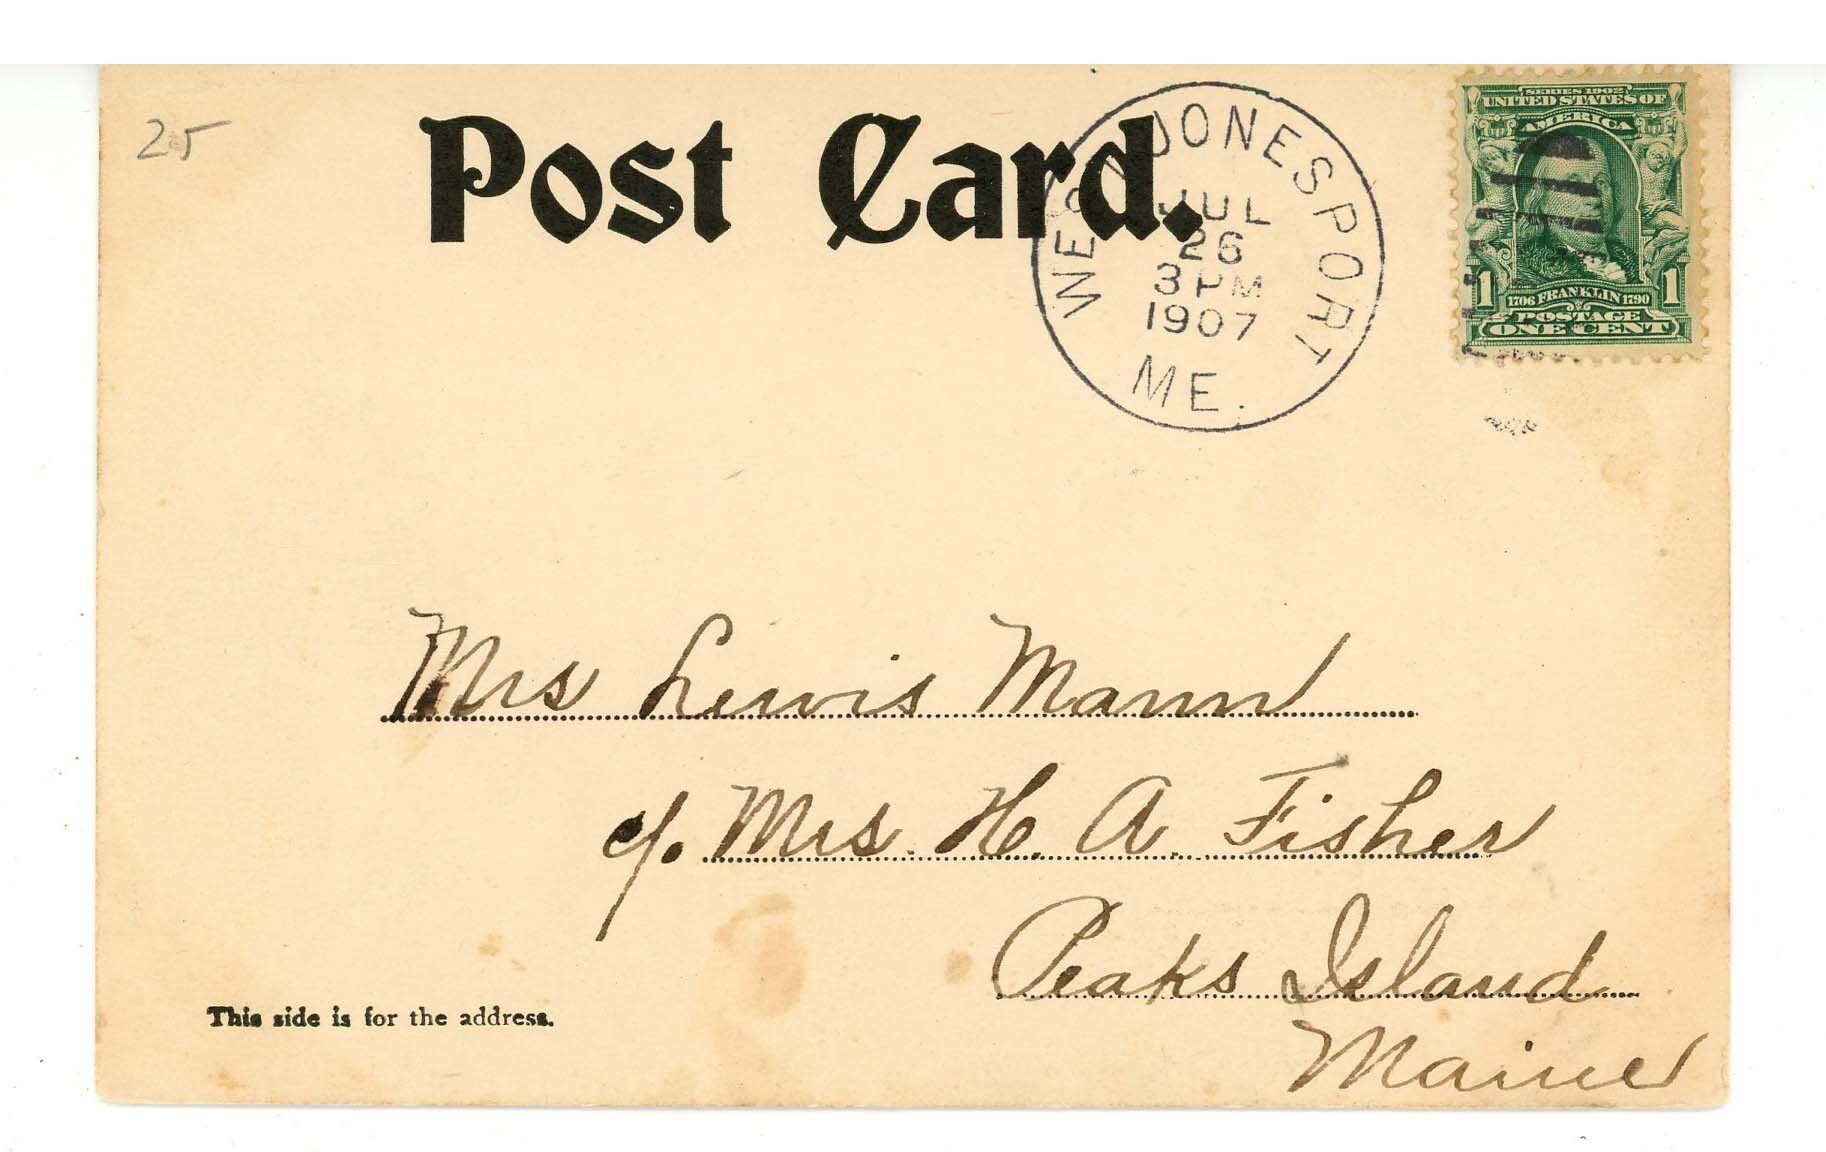 25
Post Card.
WEST JONESPORT
JUL
26
3 PM
1907
ME.
SERIES 1902
UNITED STATES OF
AMERICA
1 1
1706 FRANKLIN 1790
POSTAGE
ONE CENT
Mrs Lewis Mann
c/o Mrs. H. A. Fisher
Peaks Island
Maine
This side is for the address.